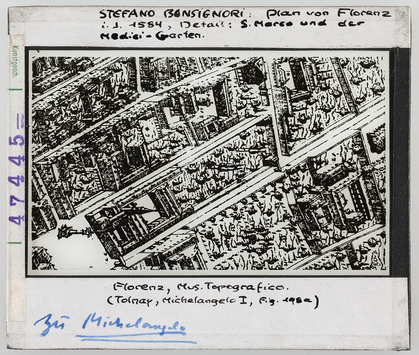 STEFANO BONSIGNORI: Plan von Florenz
i. J. 1584, Detail: S. Marco und der
Medici-Garten.
Kunstgesch
47445
Florenz, Mus. Topografico.
(Tolnay, Michelangelo I, Fig. 198a)
zu Michelangelo